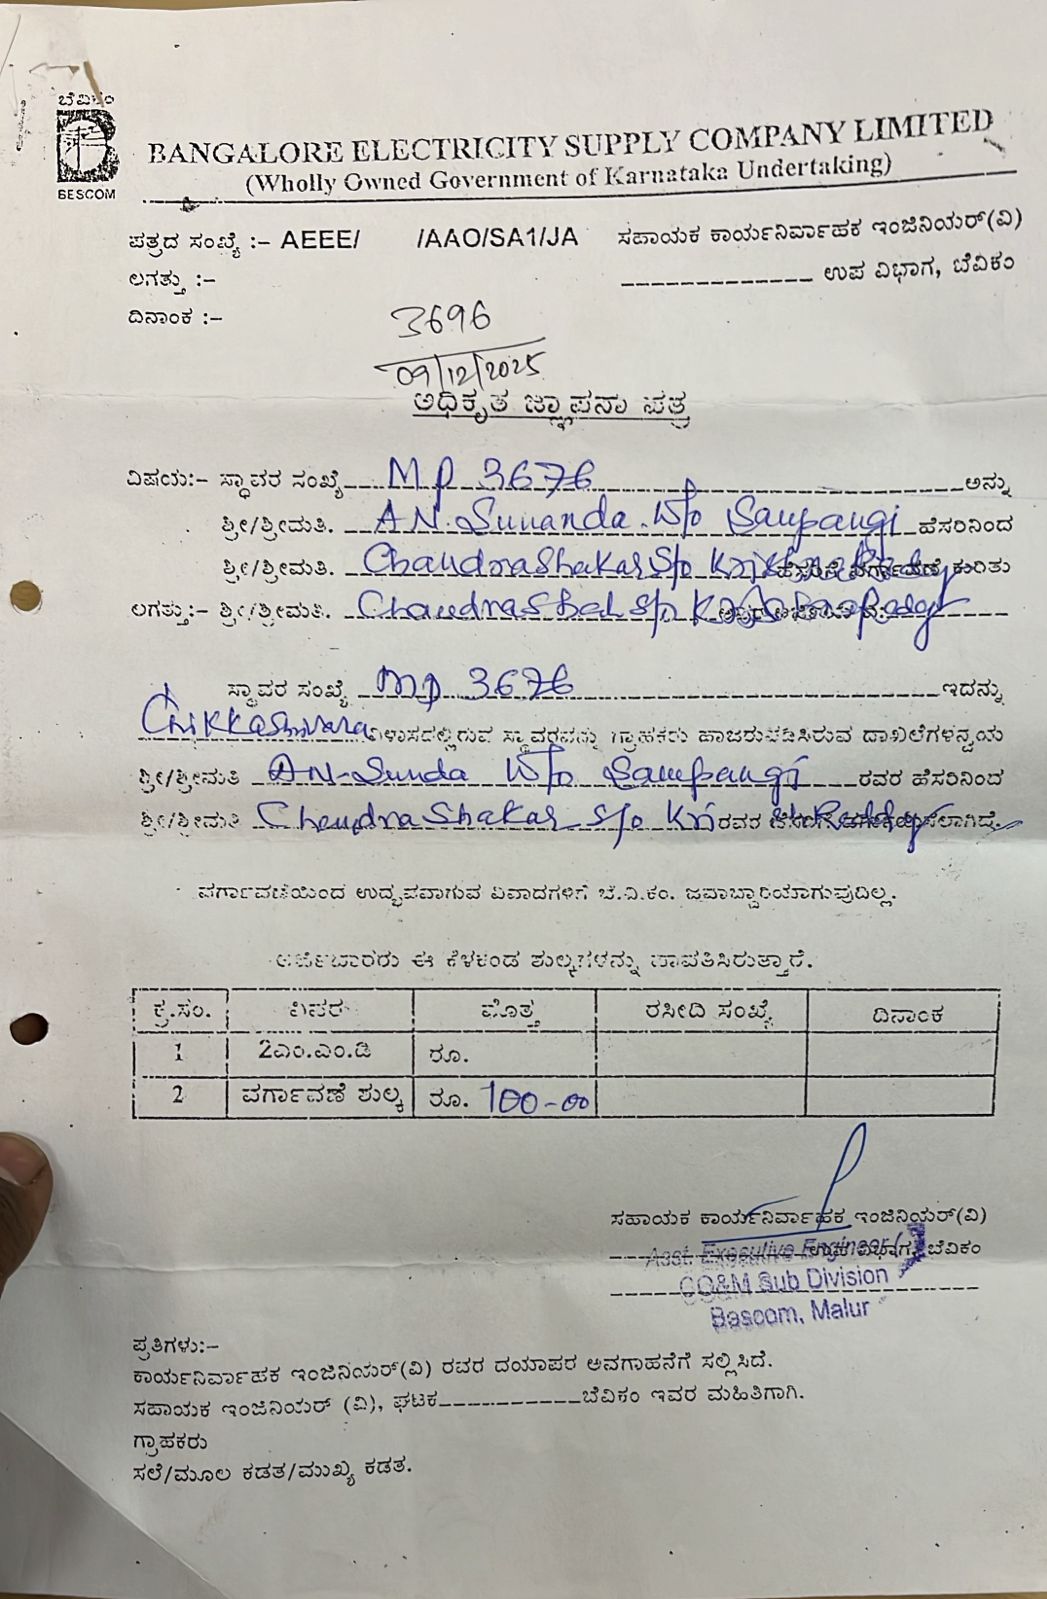 ಬೆವಿಕಂ
BESCOM
BANGALORE ELECTRICITY SUPPLY COMPANY LIMITED
(Wholly Owned Government of Karnataka Undertaking)
ಪತ್ರದ ಸಂಖ್ಯೆ :- AEEE/ /AAO/SA1/JA ಸಹಾಯಕ ಕಾರ್ಯನಿರ್ವಾಹಕ ಇಂಜಿನಿಯರ್(ವಿ)
ಲಗತ್ತು :- ____________ ಉಪ ವಿಭಾಗ, ಬೆವಿಕಂ
ದಿನಾಂಕ :-
3696
09/12/2025
ಅಧಿಕೃತ ಜ್ಞಾಪನಾ ಪತ್ರ
ವಿಷಯ:- ಸ್ಥಾವರ ಸಂಖ್ಯೆ MP 3676 ಅನ್ನು
ಶ್ರೀ/ಶ್ರೀಮತಿ. AN. Sunanda W/o Sampangi ಹೆಸರಿನಿಂದ
ಶ್ರೀ/ಶ್ರೀಮತಿ. Chandrashakar S/o ಹೆಸರಿಗೆ ವರ್ಗಾವಣೆ ಕುರಿತು
ಲಗತ್ತು:- ಶ್ರೀ/ಶ್ರೀಮತಿ. S/o
ಸ್ಥಾವರ ಸಂಖ್ಯೆ MP 3676 ಇದನ್ನು
Chikkashivara ವಿಳಾಸದಲ್ಲಿರುವ ಸ್ಥಾವರವನ್ನು ಗ್ರಾಹಕರು ಹಾಜರುಪಡಿಸಿರುವ ದಾಖಲೆಗಳನ್ವಯ
ಶ್ರೀ/ಶ್ರೀಮತಿ AN-Sunda W/o Sampangi ರವರ ಹೆಸರಿನಿಂದ
ಶ್ರೀ/ಶ್ರೀಮತಿ Chendrashakar S/o Kri sh Reddy ರವರ ಹೆಸರಿಗೆ ವರ್ಗಾಯಿಸಲಾಗಿದೆ.
ವರ್ಗಾವಣೆಯಿಂದ ಉದ್ಭವವಾಗುವ ವಿವಾದಗಳಿಗೆ ಬೆ.ವಿ.ಕಂ. ಜವಾಬ್ದಾರಿಯಾಗುವುದಿಲ್ಲ.
ಅರ್ಜಿದಾರರು ಈ ಕೆಳಕಂಡ ಶುಲ್ಕಗಳನ್ನು ಪಾವತಿಸಿರುತ್ತಾರೆ.
ಕ್ರ.ಸಂ. ವಿವರ ಮೊತ್ತ ರಸೀದಿ ಸಂಖ್ಯೆ ದಿನಾಂಕ
1 2ಎಂ.ಎಂ.ಡಿ ರೂ.
2 ವರ್ಗಾವಣೆ ಶುಲ್ಕ ರೂ. 100-00
ಸಹಾಯಕ ಕಾರ್ಯನಿರ್ವಾಹಕ ಇಂಜಿನಿಯರ್(ವಿ)
ಉಪ ವಿಭಾಗ, ಬೆವಿಕಂ
Asst. Executive Engineer
O&M Sub Division
Bescom, Malur
ಪ್ರತಿಗಳು:-
ಕಾರ್ಯನಿರ್ವಾಹಕ ಇಂಜಿನಿಯರ್(ವಿ) ರವರ ದಯಾಪರ ಅವಗಾಹನೆಗೆ ಸಲ್ಲಿಸಿದೆ.
ಸಹಾಯಕ ಇಂಜಿನಿಯರ್ (ವಿ), ಘಟಕ____________ಬೆವಿಕಂ ಇವರ ಮಹಿತಿಗಾಗಿ.
ಗ್ರಾಹಕರು
ಸಲೆ/ಮೂಲ ಕಡತ/ಮುಖ್ಯ ಕಡತ.